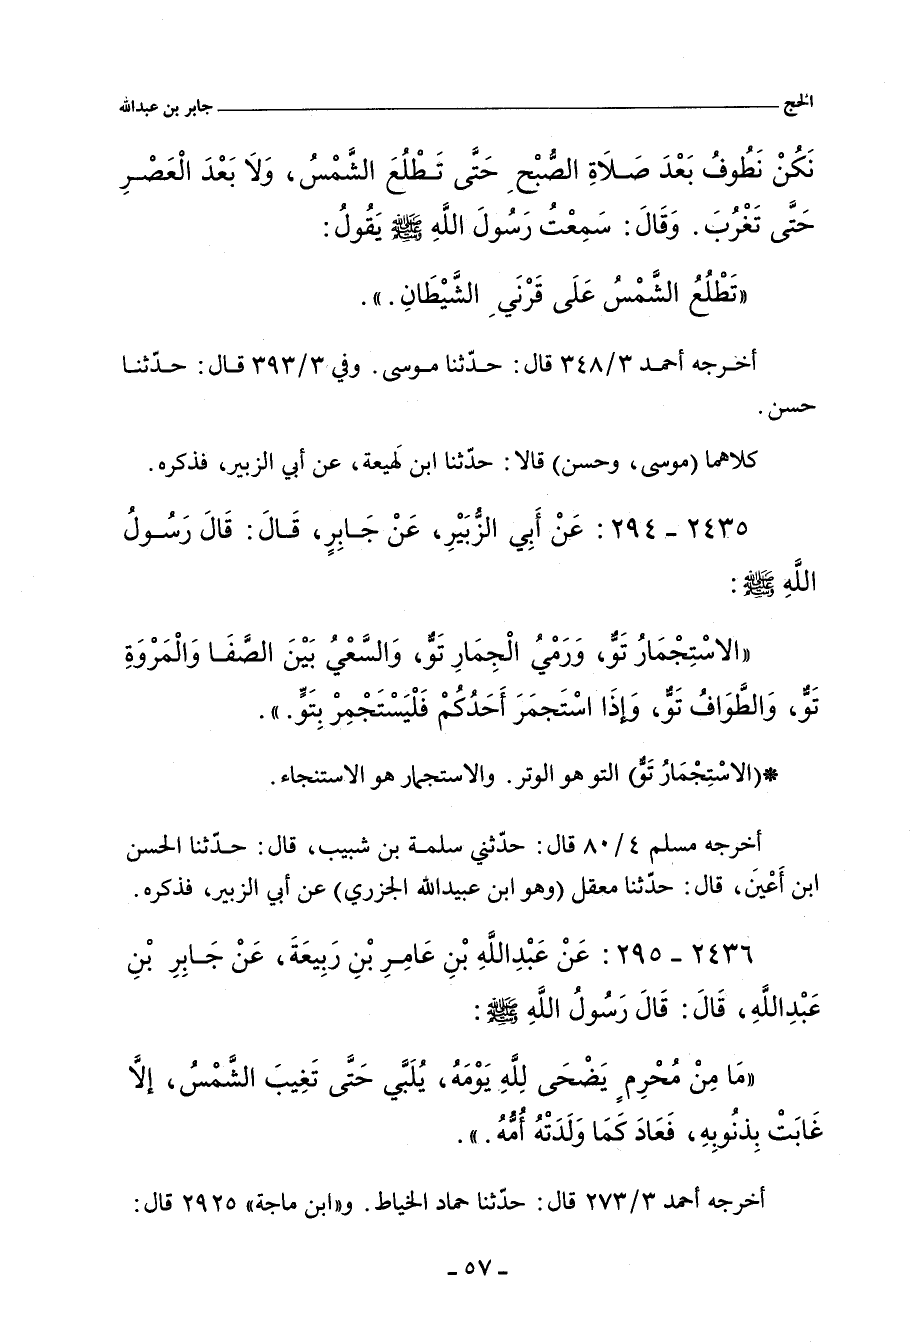 الحج ــــــ جابر بن عبدالله
نَكُنْ نَطُوفُ بَعْدَ صَلَاةِ الصُّبْحِ حَتَّى تَطْلُعَ الشَّمْسُ، وَلَا بَعْدَ الْعَصْرِ
حَتَّى تَغْرُبَ. وَقَالَ: سَمِعْتُ رَسُولَ اللَّهِ ﷺ يَقُولُ:
«تَطْلُعُ الشَّمْسُ عَلَى قَرْنَيِ الشَّيْطَانِ.».
أخرجه أحمد ٣٤٨/٣ قال: حدّثنا موسى. وفي ٣٩٣/٣ قال: حدّثنا
حسن.
كلاهما (موسى، وحسن) قالا: حدّثنا ابن لَهيعة، عن أبي الزبير، فذكره.
٢٤٣٥ - ٢٩٤: عَنْ أَبِي الزُّبَيْرِ، عَنْ جَابِرٍ، قَالَ: قَالَ رَسُولُ
اللَّهِ ﷺ:
«الاسْتِجْمَارُ تَوٌّ، وَرَمْيُ الْجِمَارِ تَوٌّ، وَالسَّعْيُ بَيْنَ الصَّفَا وَالْمَرْوَةِ
تَوٌّ، وَالطَّوَافُ تَوٌّ، وَإِذَا اسْتَجمَرَ أَحَدُكُمْ فَلْيَسْتَجْمِرْ بِتَوٍّ.».
*(الاسْتِجْمَارُ تَوٌّ) التو هو الوتر. والاستجمار هو الاستنجاء.
أخرجه مسلم ٨٠/٤ قال: حدّثني سلمة بن شبيب، قال: حدّثنا الحسن
ابن أَعْيَنَ، قال: حدّثنا معقل (وهو ابن عبيدالله الجزري) عن أبي الزبير، فذكره.
٢٤٣٦ - ٢٩٥: عَنْ عَبْدِاللَّهِ بْنِ عَامِرِ بْنِ رَبِيعَةَ، عَنْ جَابِرِ بْنِ
عَبْدِاللَّهِ، قَالَ: قَالَ رَسُولُ اللَّهِ ﷺ:
«مَا مِنْ مُحْرِمٍ يَضْحَى لِلَّهِ يَوْمَهُ، يُلَبِّي حَتَّى تَغِيبَ الشَّمْسُ، إلَّا
غَابَتْ بِذنُوبِهِ، فَعَادَ كَمَا وَلَدَتْهُ أُمُّهُ.».
أخرجه أحمد ٢٧٣/٣ قال: حدّثنا حماد الخياط. و«ابن ماجة» ٢٩٢٥ قال:
- ٥٧ -